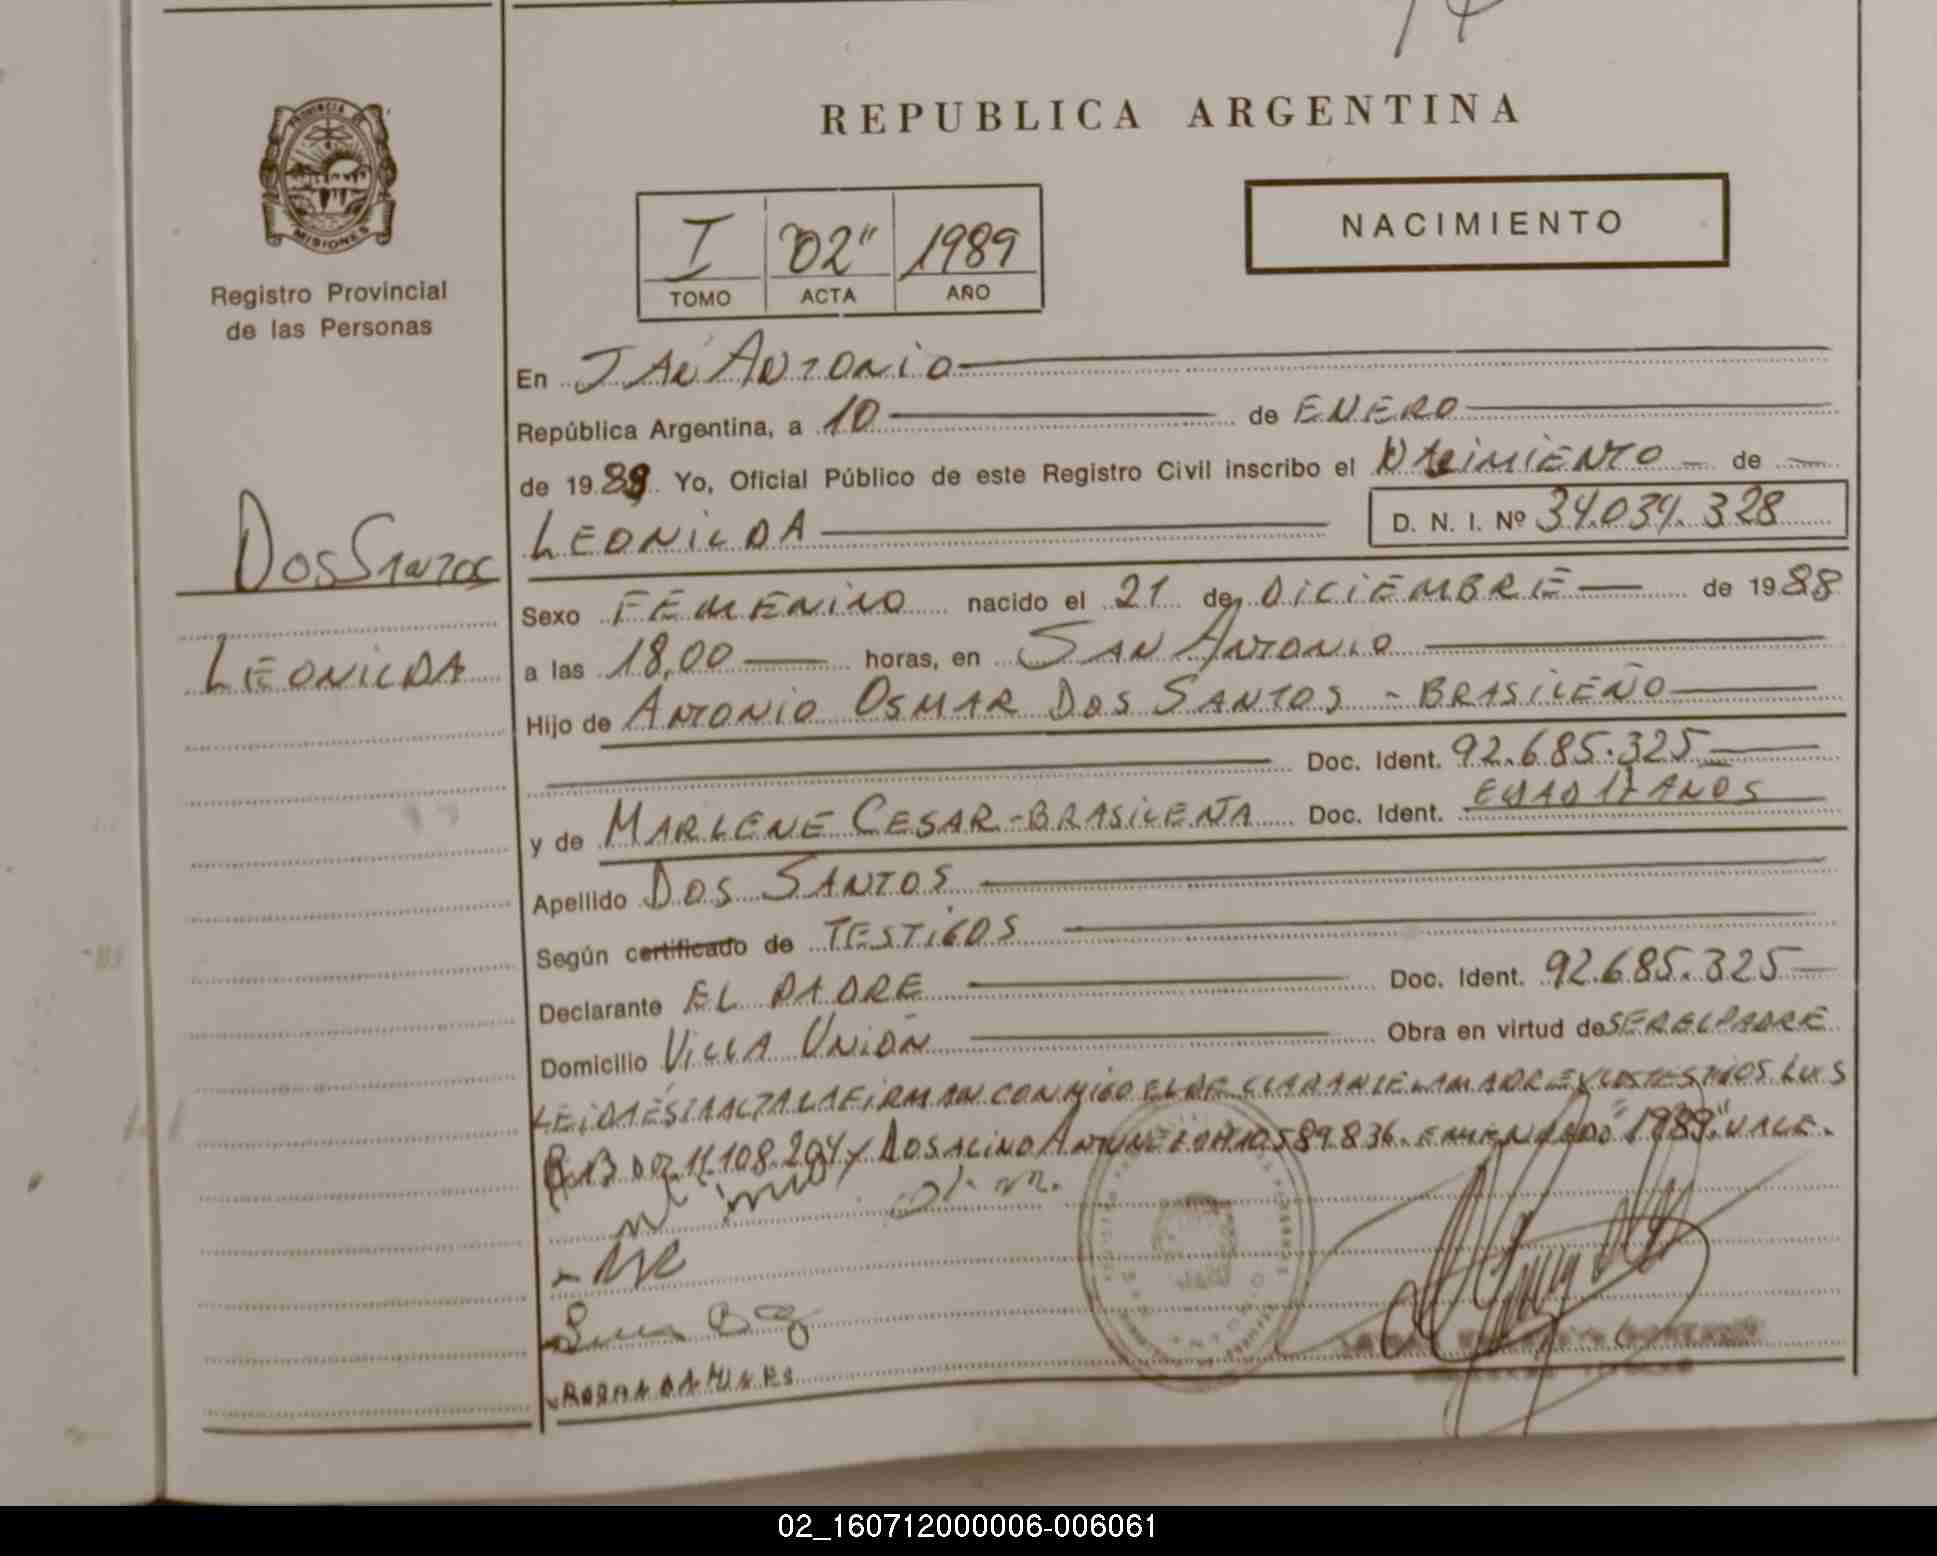 REPUBLICA ARGENTINA
PROVINCIA DE
MISIONES
Registro Provincial
de las Personas
I "02" 1989
TOMO ACTA AÑO
NACIMIENTO
En SAN ANTONIO
República Argentina, a 10 de ENERO
de 1989 Yo, Oficial Público de este Registro Civil inscribo el NACIMIENTO de
LEONILDA D. N. I. Nº 34.034.328
DOS SANTOS
LEONILDA
Sexo FEMENINO nacido el 21 de DICIEMBRE de 1988
a las 18,00 horas, en SAN ANTONIO
Hijo de ANTONIO OSMAR DOS SANTOS - BRASILEÑO
Doc. Ident. 92.685.325
y de MARLENE CESAR - BRASILEÑA Doc. Ident. EDAD 17 AÑOS
Apellido DOS SANTOS
Según certificado de TESTIGOS
Declarante EL PADRE Doc. Ident. 92.685.325
Domicilio VILLA UNIÓN Obra en virtud de SER EL PADRE
LEIDA ESTA ACTA LA FIRMAN CONMIGO EL DECLARANTE LA MADRE Y LOS TESTIGOS LUIS
11.108.204 Y ROSALINO 10.589.836. ENMENDADO "1989" VALE.
02_160712000006-006061